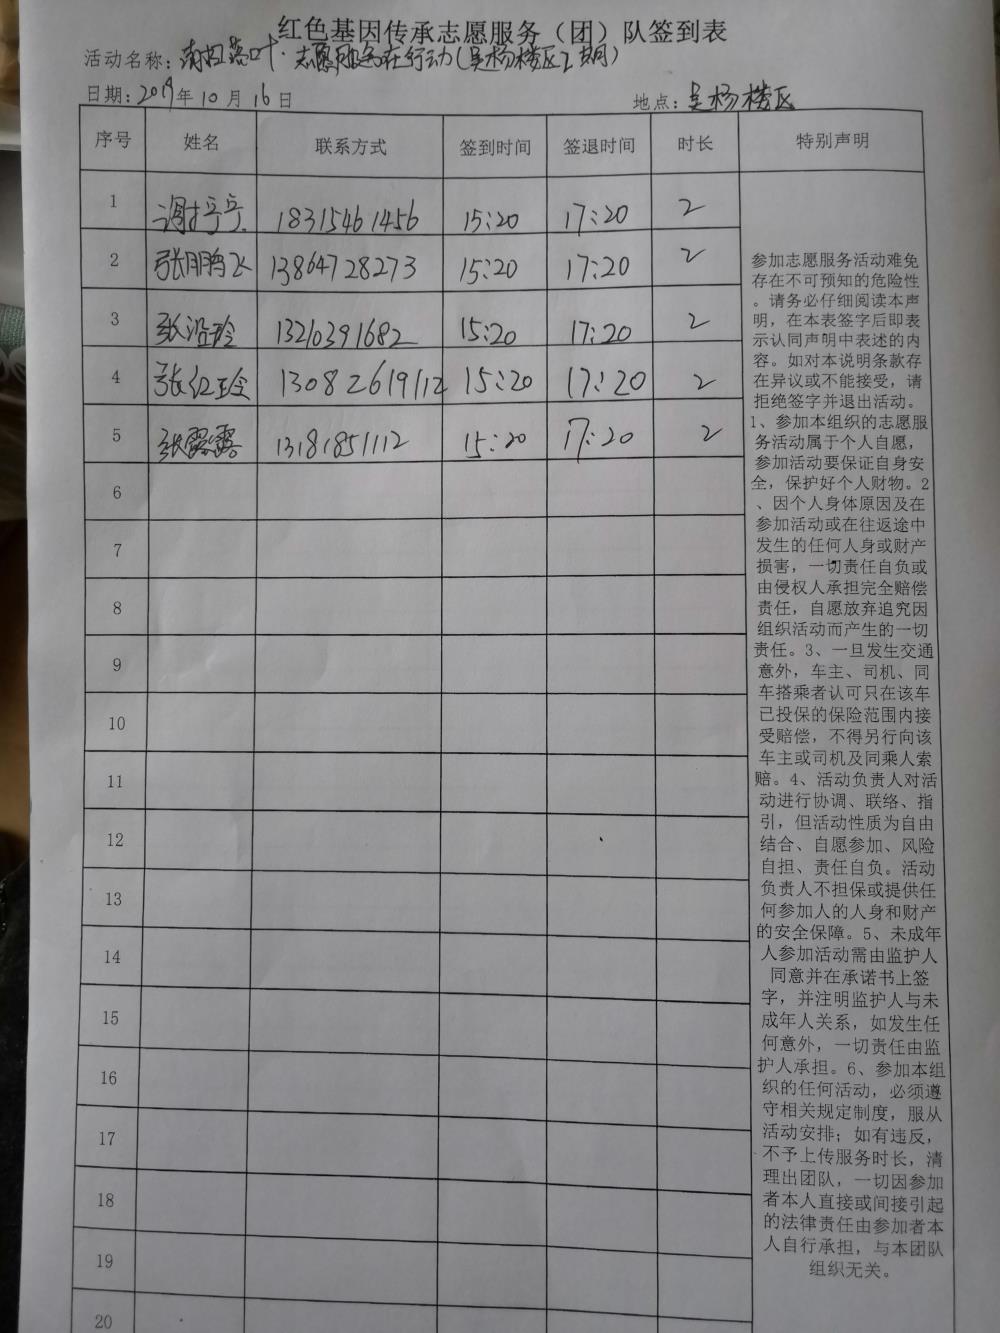 红色基因传承志愿服务（团）队签到表
活动名称：清扫落叶·志愿服务在行动(吴杨楼区2期)
日期：2019年10月16日 地点：吴杨楼区
序号 姓名 联系方式 签到时间 签退时间 时长 特别声明
1 谢亭亭 18315461456 15:20 17:20 2
2 张鹏飞 13864728273 15:20 17:20 2
3 张沿玲 13210391682 15:20 17:20 2
4 张红玲 13082619112 15:20 17:20 2
5 张露露 13181851112 15:20 17:20 2
6
7
8
9
10
11
12
13
14
15
16
17
18
19
20
参加志愿服务活动难免
存在不可预知的危险性
。请务必仔细阅读本声
明，在本表签字后即表
示认同声明中表述的内
容。如对本说明条款存
在异议或不能接受，请
拒绝签字并退出活动。
1、参加本组织的志愿服
务活动属于个人自愿，
参加活动要保证自身安
全，保护好个人财物。2
、因个人身体原因及在
参加活动或在往返途中
发生的任何人身或财产
损害，一切责任自负或
由侵权人承担完全赔偿
责任，自愿放弃追究因
组织活动而产生的一切
责任。3、一旦发生交通
意外，车主、司机、同
车搭乘者认可只在该车
已投保的保险范围内接
受赔偿，不得另行向该
车主或司机及同乘人索
赔。4、活动负责人对活
动进行协调、联络、指
引，但活动性质为自由
结合、自愿参加、风险
自担、责任自负。活动
负责人不担保或提供任
何参加人的人身和财产
的安全保障。5、未成年
人参加活动需由监护人
同意并在承诺书上签
字，并注明监护人与未
成年人关系，如发生任
何意外，一切责任由监
护人承担。6、参加本组
织的任何活动，必须遵
守相关规定制度，服从
活动安排；如有违反，
不予上传服务时长，清
理出团队，一切因参加
者本人直接或间接引起
的法律责任由参加者本
人自行承担，与本团队
组织无关。